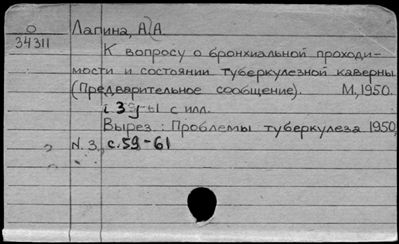 О
34311
Лапина, А. А.
К вопросу о бронхиальной проходи-
мости и состоянии туберкулезной каверны
(Предварительное сообщение). М, 1950.
с илл.
Вырез.: Проблемы туберкулеза 1950,
N. 3, с. 59-61